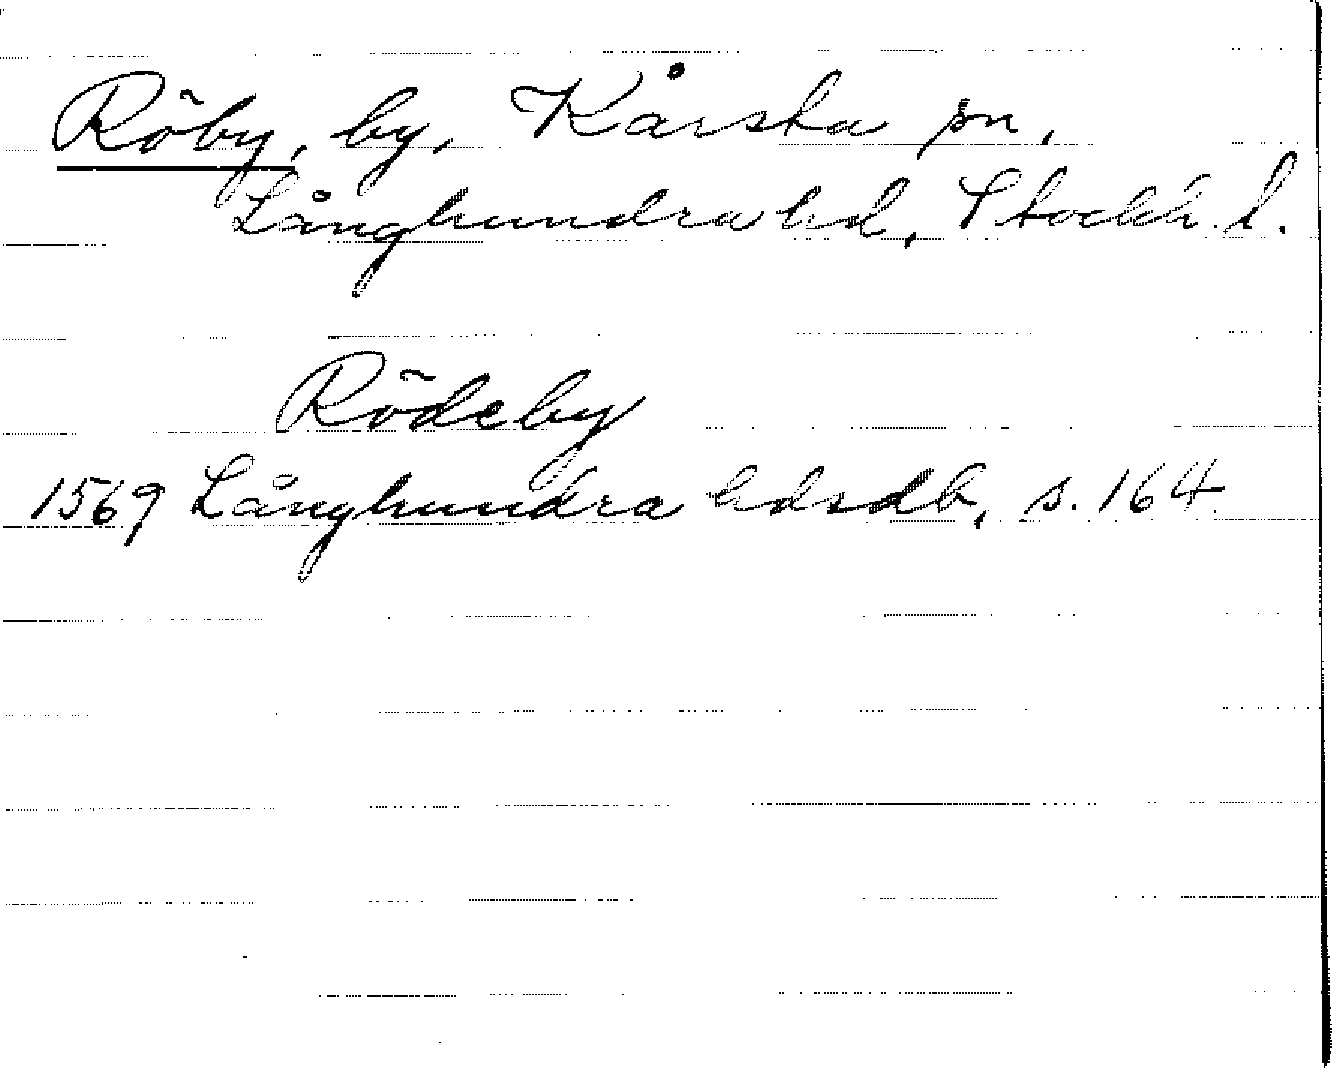 Röby, by, Kårsta sn,
Långhundra hd, Stockh. l.
Rödeby
1569 Långhundra hdsdb, s. 164